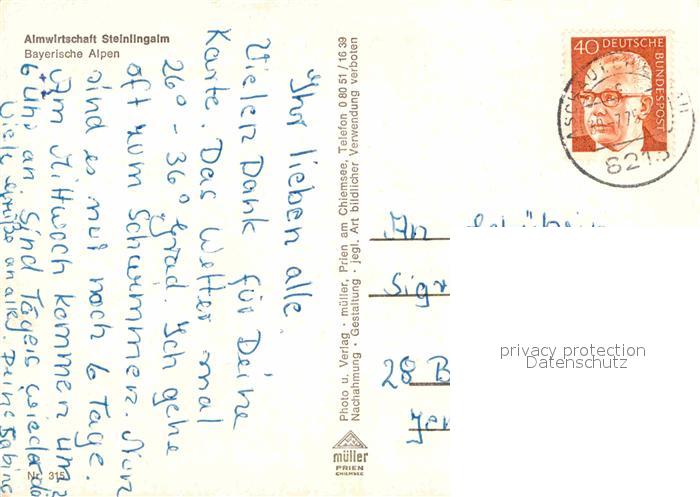 Almwirtschaft Steinlingalm
Bayerische Alpen
Ihr lieben alle
Vielen Dank für Deine
Karte. Das Wetter mal
26° - 36° Grad. Ich gehe
oft zum Schwimmen. Nun
sind es nur noch 6 Tage.
Am Mittwoch kommen um
6 Uhr an sind Tag wieder da
Viele Grüße an alle, Deine Sabine
Nr. 315
Photo u. Verlag · müller, Prien am Chiemsee, Telefon 0 80 51 / 16 39
Nachahmung · Gestaltung · jegl. Art bildlicher Verwendung verboten
müller
PRIEN
CHIEMSEE
40 DEUTSCHE
BUNDESPOST
8213
An
Sig
28 B
Jen
privacy protection
Datenschutz